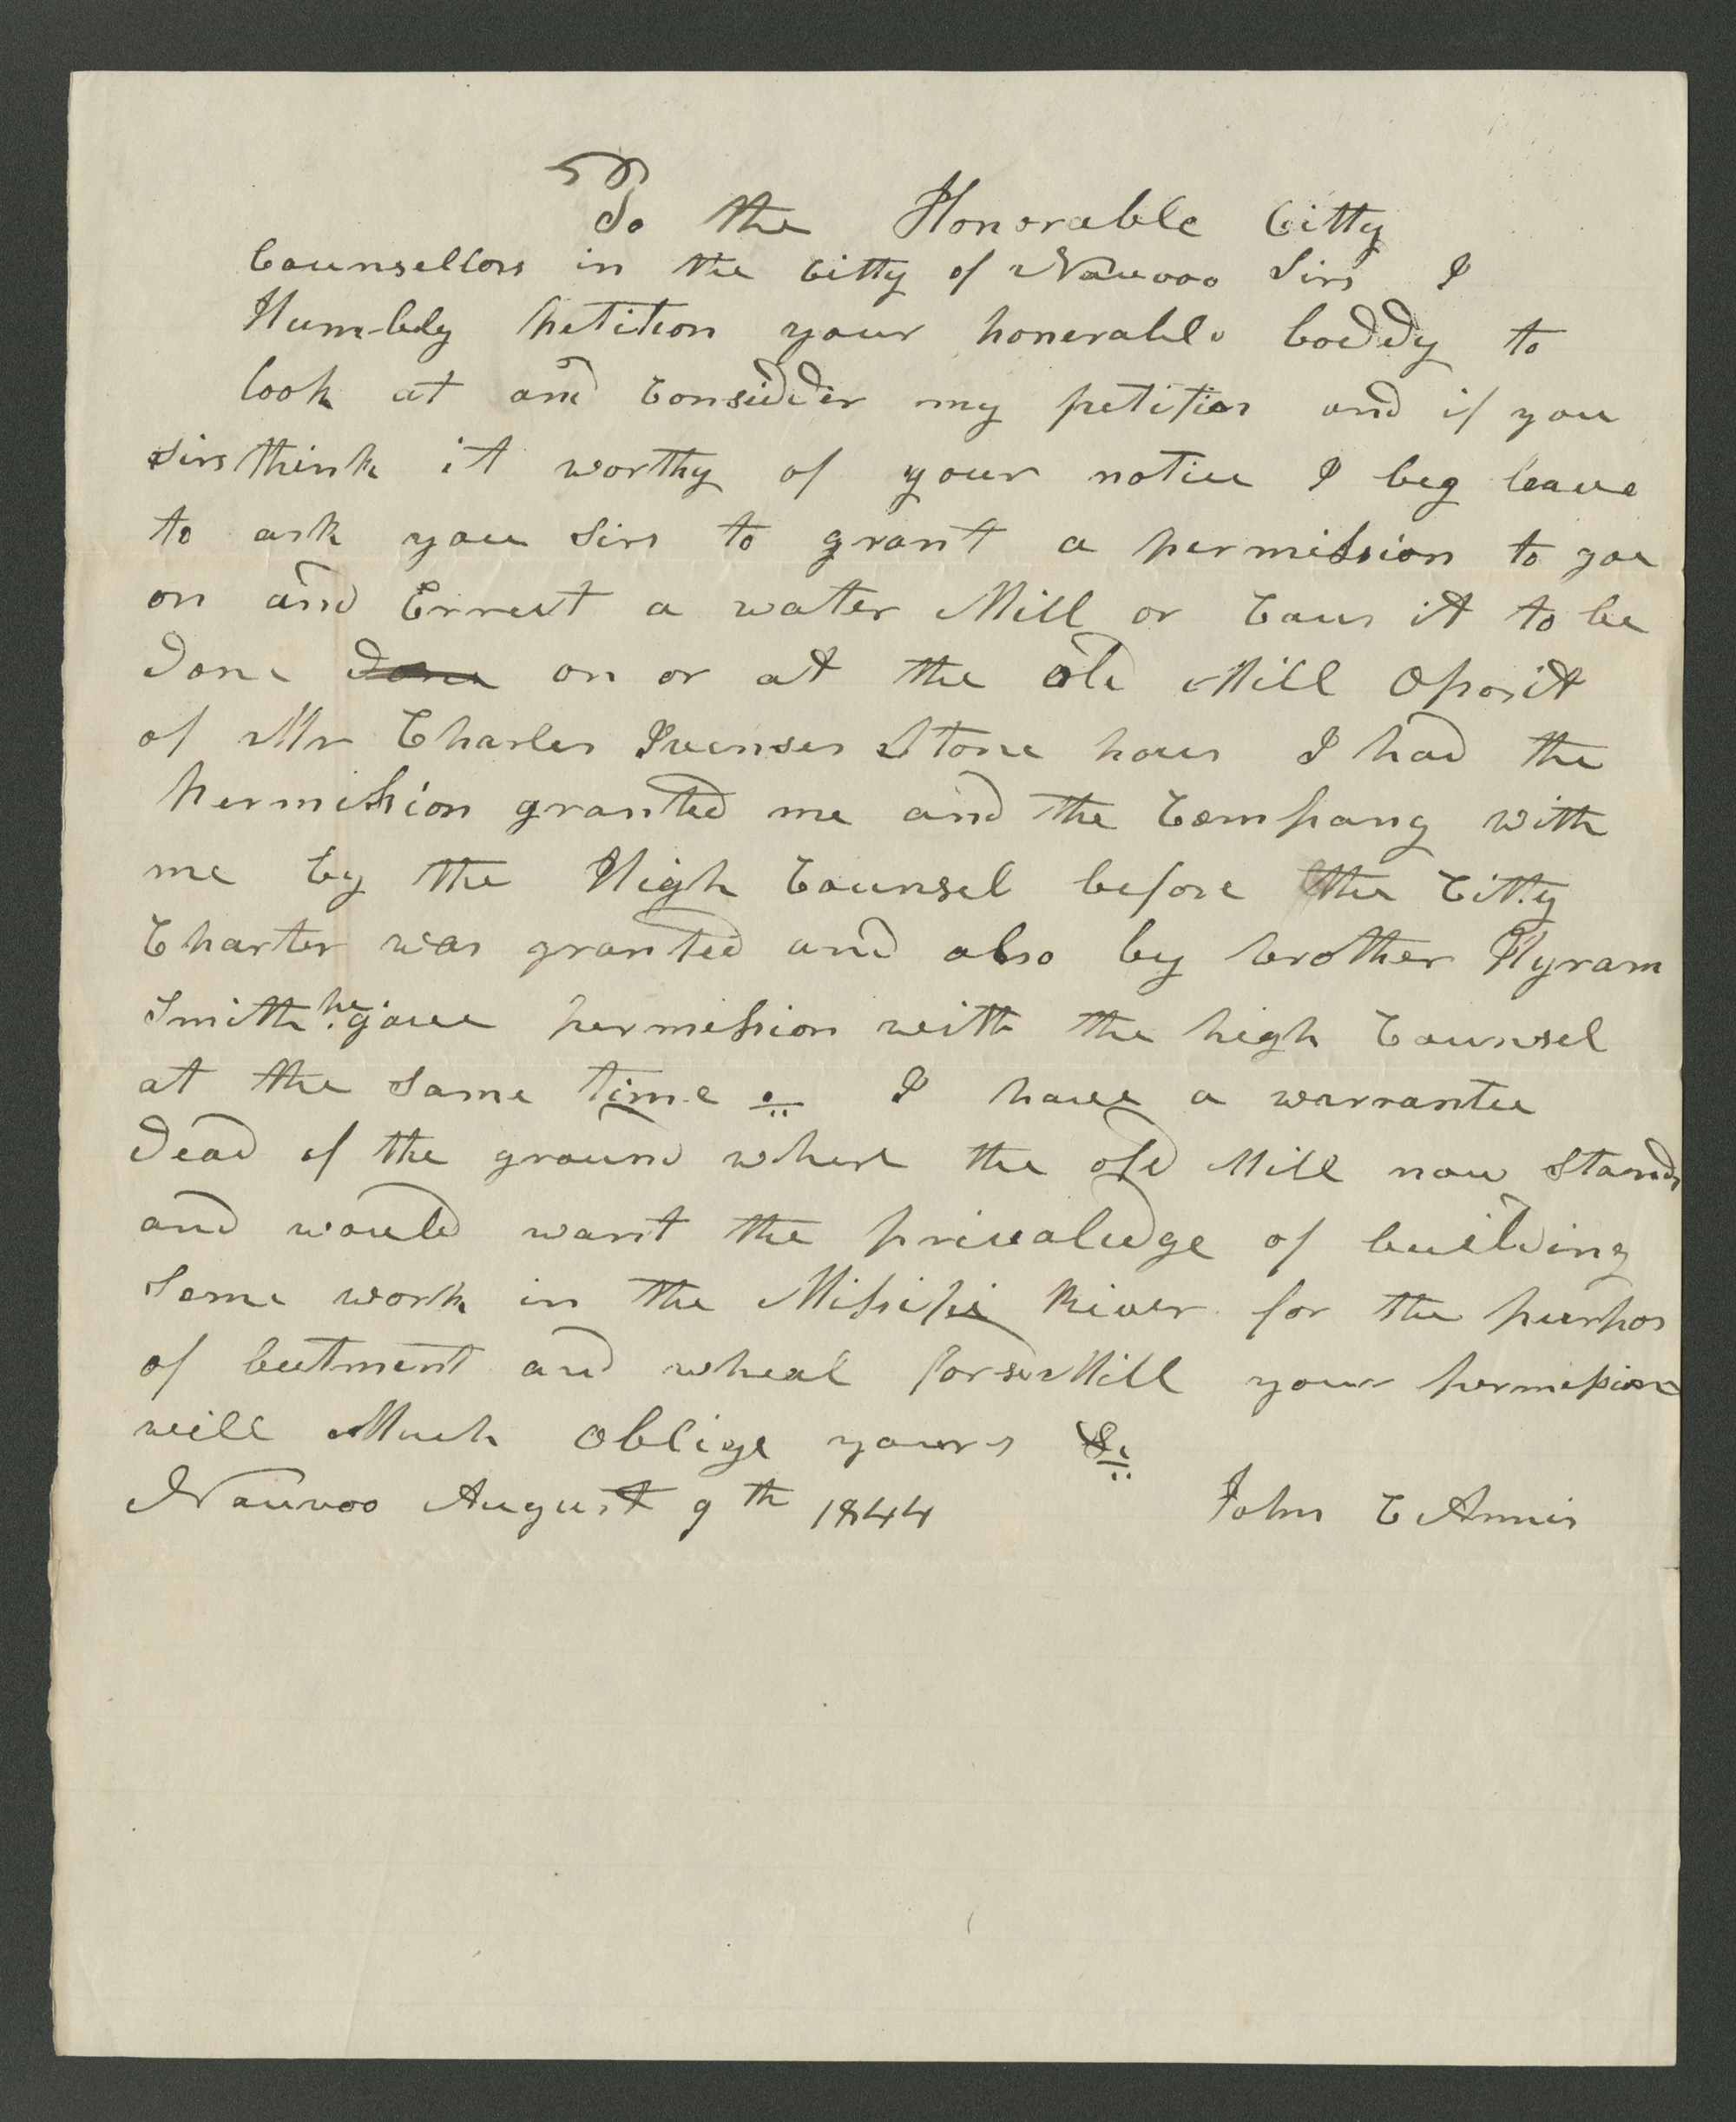 To the Honorable Citty
Counsellors in the Citty of Nauvoo Sirs I
Humbely petition your honerable boddy to
look at and Considder my petition and if you
sirs think it worthy of your notice I beg leave
to ask you Sirs to grant a permission to goe
on and Errect a water Mill or Caus it to be
done done on or at the old Mill Oposit
of Mr Charles Ivenses Stone hous I had the
permission granted me and the Company with
me by the High Counsel before the Citty
Charter was granted and also by brother Hyram
Smith he gave permission with the high Counsel
at the same time I have a warrantee
dead of the ground where the old Mill now Stands
and would want the privaledge of building
Some work in the Missisipi River for the purpos
of butment and wheal for sd Mill your permission
will Much Oblige yours &c
Nauvoo August 9th 1844 John C Annis